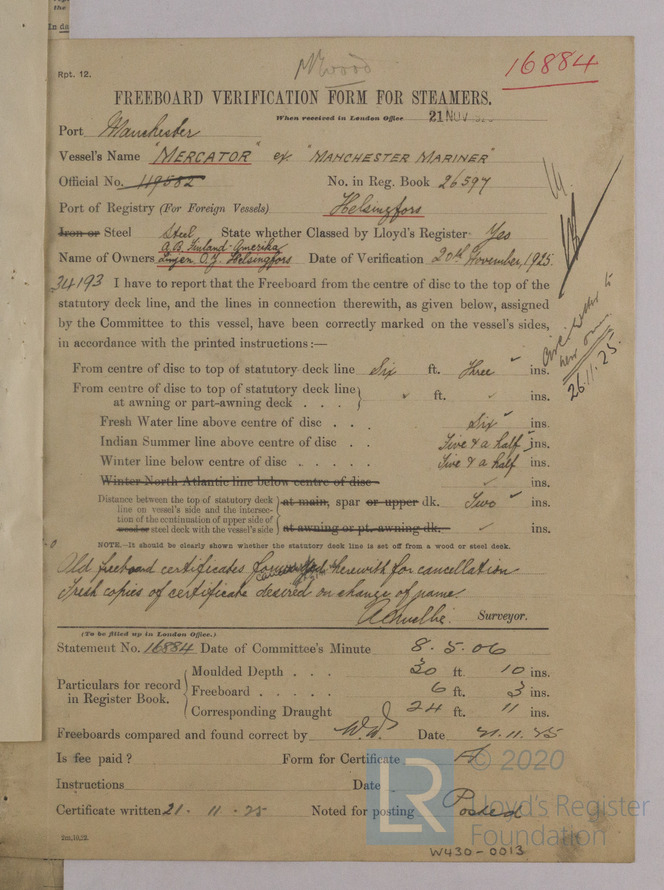 the
In da
Rpt. 12.
Mr Wood
16884
FREEBOARD VERIFICATION FORM FOR STEAMERS.
When received in London Office 21 NOV
Port Manchester
Vessel's Name "MERCATOR" ex "MANCHESTER MARINER"
Official No. 119882 No. in Reg. Book 26597
Port of Registry (For Foreign Vessels) Helsingfors
Iron or Steel Steel State whether Classed by Lloyd's Register Yes
A.B. Finland-Amerika
Name of Owners Linjen O.Y. Helsingfors Date of Verification 20th November, 1925.
34193 I have to report that the Freeboard from the centre of disc to the top of the
statutory deck line, and the lines in connection therewith, as given below, assigned
by the Committee to this vessel, have been correctly marked on the vessel's sides,
in accordance with the printed instructions :—
From centre of disc to top of statutory deck line Six ft. Three ins.
From centre of disc to top of statutory deck line
at awning or part-awning deck . . . ft. ins.
Fresh Water line above centre of disc . . . Six ins.
Indian Summer line above centre of disc . . Five & a half ins.
Winter line below centre of disc . . . . . Five & a half ins.
Winter North Atlantic line below centre of disc ins.
Distance between the top of statutory deck line on vessel's side and the intersection of the continuation of upper side of wood or steel deck with the vessel's side
at main, spar or upper dk. Two ins.
at awning or pt. awning dk. ins.
NOTE.—It should be clearly shown whether the statutory deck line is set off from a wood or steel deck.
Old freeboard certificates forwarded herewith for cancellation
Fresh copies of certificate desired on change of name.
Surveyor.
26.11.25.
(To be filled up in London Office.)
Statement No. 16884 Date of Committee's Minute 8.5.06
Particulars for record in Register Book.
Moulded Depth . . . 30 ft. 10 ins.
Freeboard . . . . . 6 ft. 3 ins.
Corresponding Draught 24 ft. 11 ins.
Freeboards compared and found correct by Date 21.11.25
Is fee paid ? Form for Certificate A
Instructions Date
Certificate written 21 . 11 . 25 Noted for posting Posted
2m,10,22.
W430-0013
LR © 2020
Lloyd's Register
Foundation